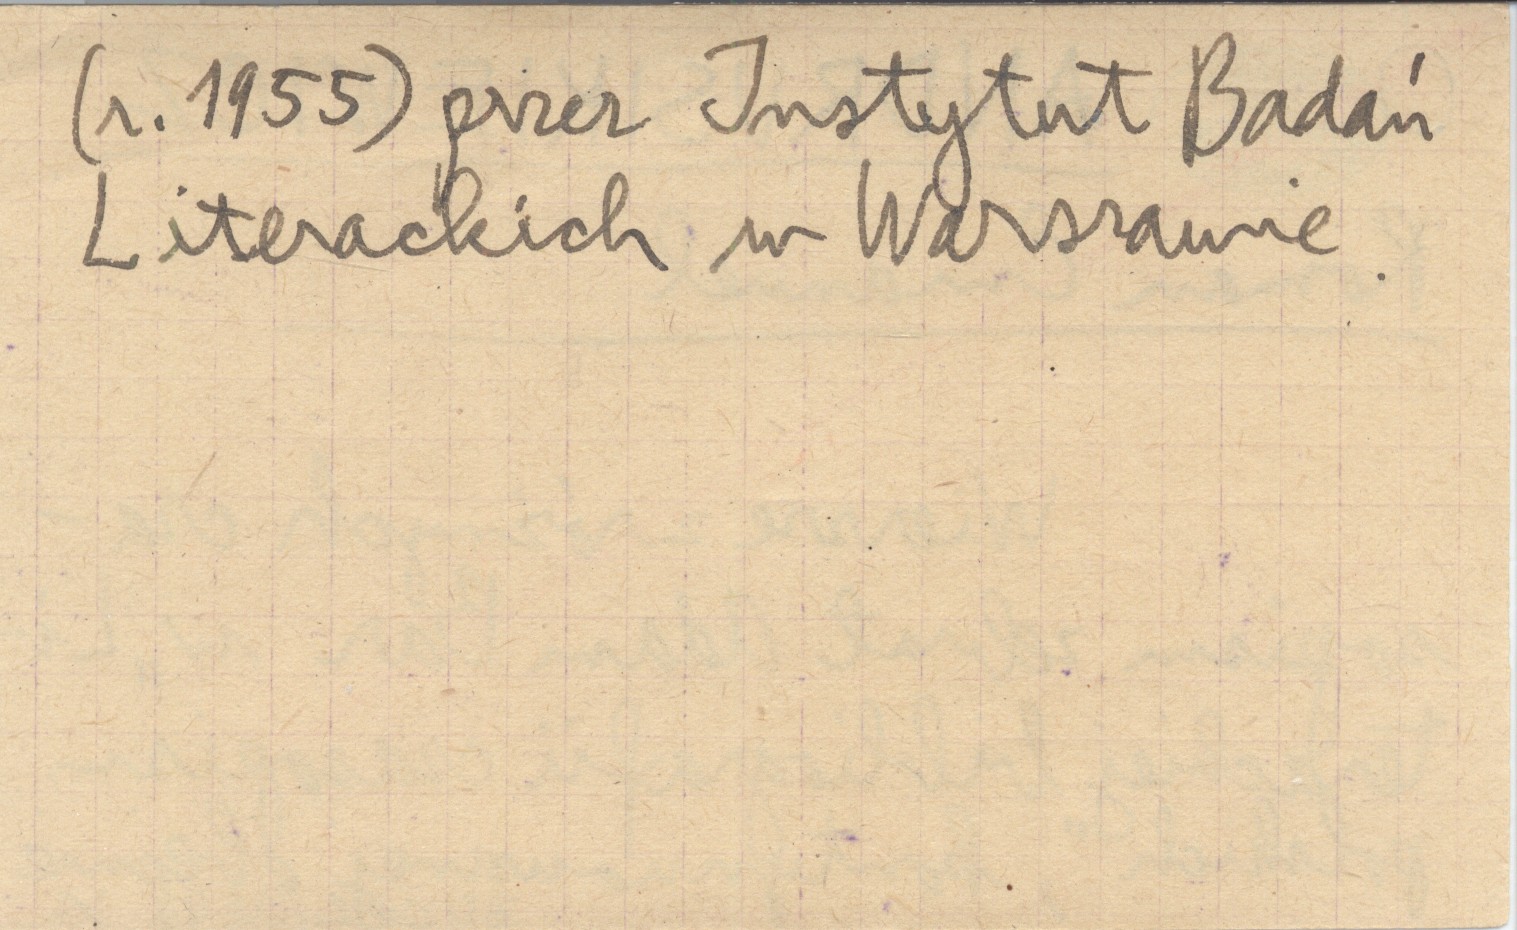 (r. 1955) przez Instytut Badań
Literackich w Warszawie.